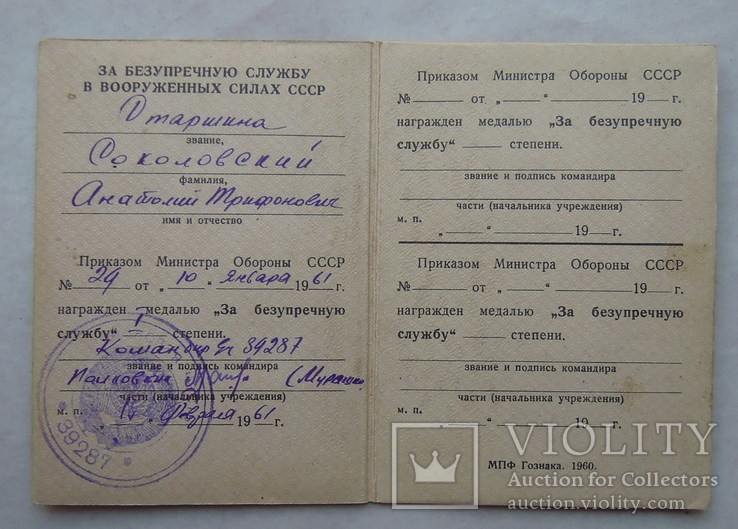 ЗА БЕЗУПРЕЧНУЮ СЛУЖБУ
В ВООРУЖЕННЫХ СИЛАХ СССР
Старшина
звание,
Соколовский
фамилия,
Анатолий Трифонович
имя и отчество
Приказом Министра Обороны СССР
№ 29 от „10" января 1961 г.
награжден медалью „За безупречную
службу" I степени.
Командир вч 39287
звание и подпись командира
Полковник (Мурашко
части (начальника учреждения)
м. п. февраля 1961 г.
39287
Приказом Министра Обороны СССР
№ от „ " 19 г.
награжден медалью „За безупречную
службу" степени.
звание и подпись командира
части (начальника учреждения)
м. п.
„ " 19 г.
Приказом Министра Обороны СССР
№ от „ " 19 г.
награжден медалью „За безупречную
службу" степени.
звание и подпись командира
части (начальника учреждения)
м. п. „ " 19 г.
МПФ Гознака. 1960.
VIOLITY
Auction for Collectors
auction.violity.com